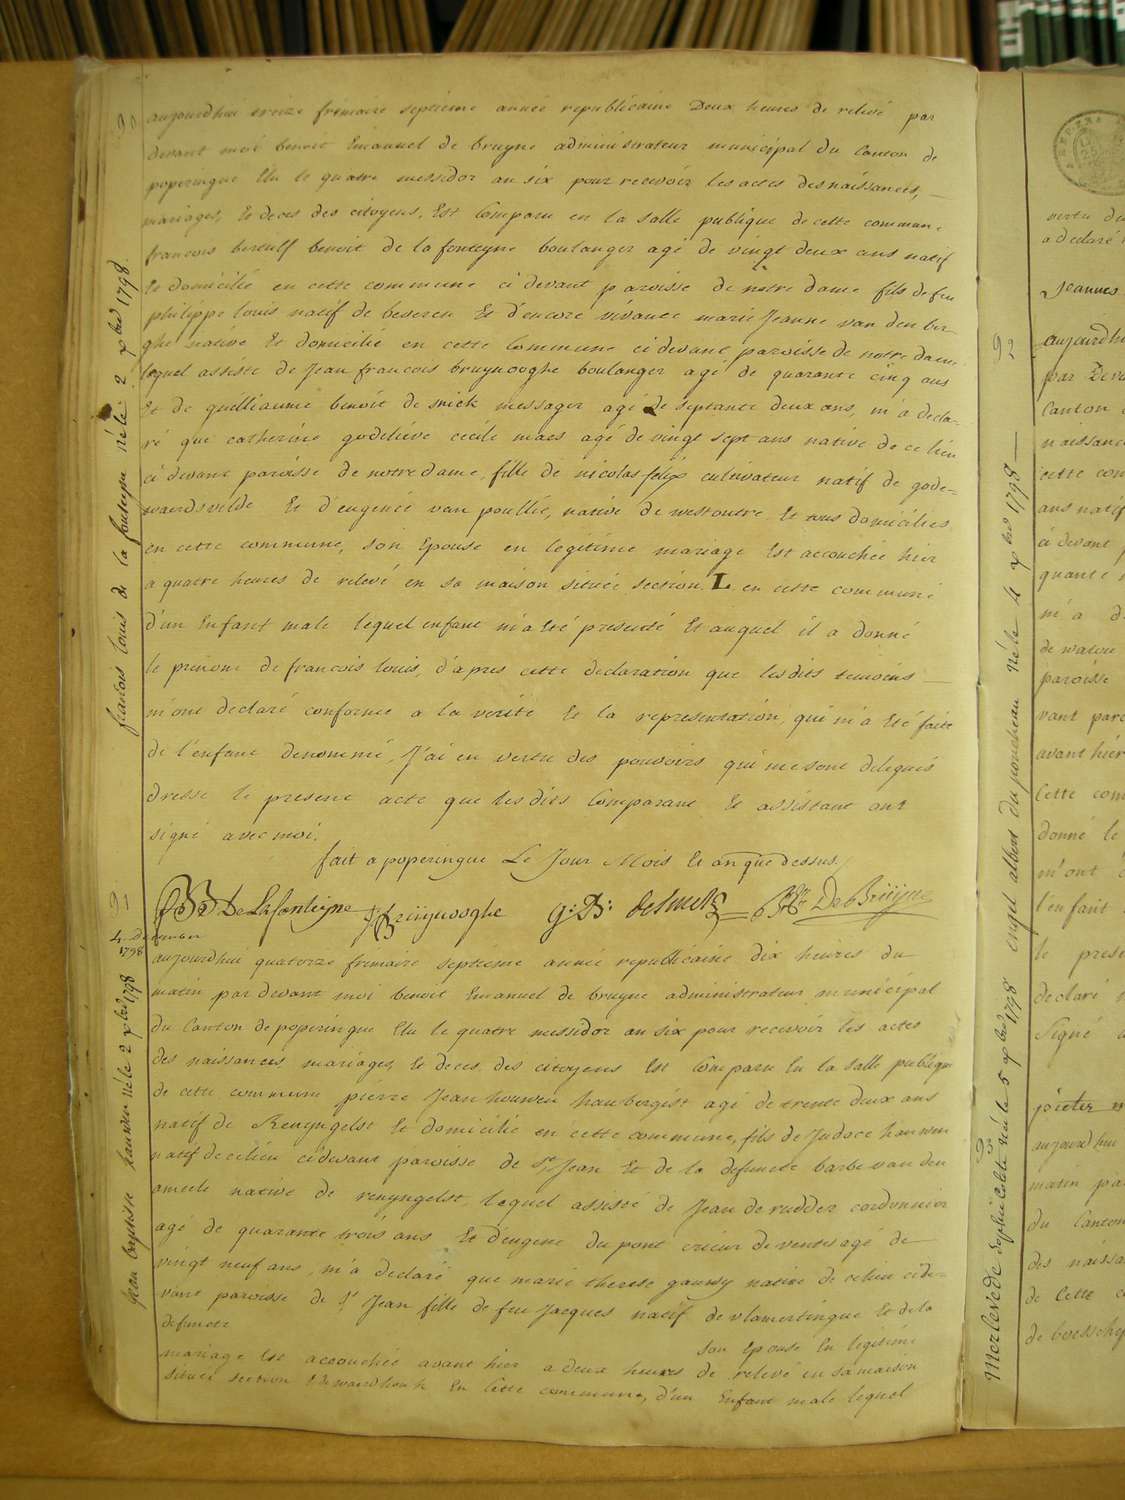 90
aujourdhui treize frimaire septieme année republicaine Deux heures de relevé par
devant moi benoit Emanuel de bruyne administrateur municipal du Canton de
poperingue Elu le quatre messidor an six pour recevoir les actes des naissances,
mariages, et deces des citoyens, Est Comparu en la salle publique de cette commune
francois benoit de la fonteyne boulanger agé de vingt deux ans natif
Et domicilié en cette commune ci devant paroisse de notre dame fils de feu
philippe louis natif de beseren Et d'encore vivante marie Jeanne van den ber-
ghe native Et domicilié en cette Commune ci devant paroisse de notre dame
lequel assisté de Jean francois bruynooghe boulanger agé de quarante cinq ans
Et de guilliaume benoit de smick messager agé de septante deux ans, m'a decla-
ré que catherine godelieve cecile maes agé de vingt sept ans native de ce lieu
ci devant paroisse de notre dame, fille de nicolas felix cultivateur natif de gode-
waersvelde Et d'eugenie van poullie, native de westoutre Et tous domiciliés
en cette commune, son Epouse en legitime mariage Est accouchée hier
a quatre heures de relevé en sa maison située section L en cette commune
d'un Enfant male lequel enfant m'a Eté presenté Et auquel il a donné
le prenom de francois louis, d'apres cette declaration que lesdits temoins
m'ont declaré conforme a la verité Et la representation, qui m'a Eté faite
de l'enfant denommé, J'ai en vertu des pouvoirs qui me sont delegués
dressé le present acte que lesdits Comparant Et assistant ont
signé avec moi.
fait a poperingue Le Jour Mois Et an que dessus
De Lafonteijne Bruijnooghe g: B: desmick De Bruijne
francois louis de la fonteyne né le 2 xbre 1798
91
4 Decemr
1798
aujourdhui quatorze frimaire septieme année republicaine dix heures du
matin par devant moi benoit Emanuel de bruyne administrateur municipal
du Canton de poperingue Elu le quatre messidor an six pour recevoir les actes
des naissances mariages, Et deces des citoyens Est Comparu En la salle publique
de cette commune pierre Jean houwen haubergist agé de trente deux ans
natif de Renyngelst Et domicilié en cette commune, fils de Judoce houwen
natif de ce lieu ci devant paroisse de St Jean Et de la defuncte barbe van den
ameele native de renyngelst, lequel assisté de Jean de rudder cordonnier
agé de quarante trois ans Et d'eugene du pont crieur de ventes agé de
vingt neuf ans, m'a declaré que marie therese gauwy native de ce lieu cide-
vant paroisse de St Jean fille de feu Jacques natif de vlamertingue Et de la
defuncte
son Epouse En legitime
mariage Est accouchée avant hier a deux heures de relevé en sa maison
située section En cette commune, d'un Enfant male lequel
Jean baptiste hauwen né le 2 xbre 1798
vertu du
a declaré
Jeannes
92
aujourdhu
par Deva
Canton
naissanc
cette com
ans natif
ci devant
quante
m'a d
de native
paroisse
vant paro
avant hier
Cette com
donné le
m'ont
l'enfant
le prese
declaré
Signé
engel albert du poncheau né le 4 xbre 1798
pieter
aujourdhu
matin pa
du Canton
des naissa
de Cette c
de boeschep
Merlevede sophie né le 5 xbre 1798